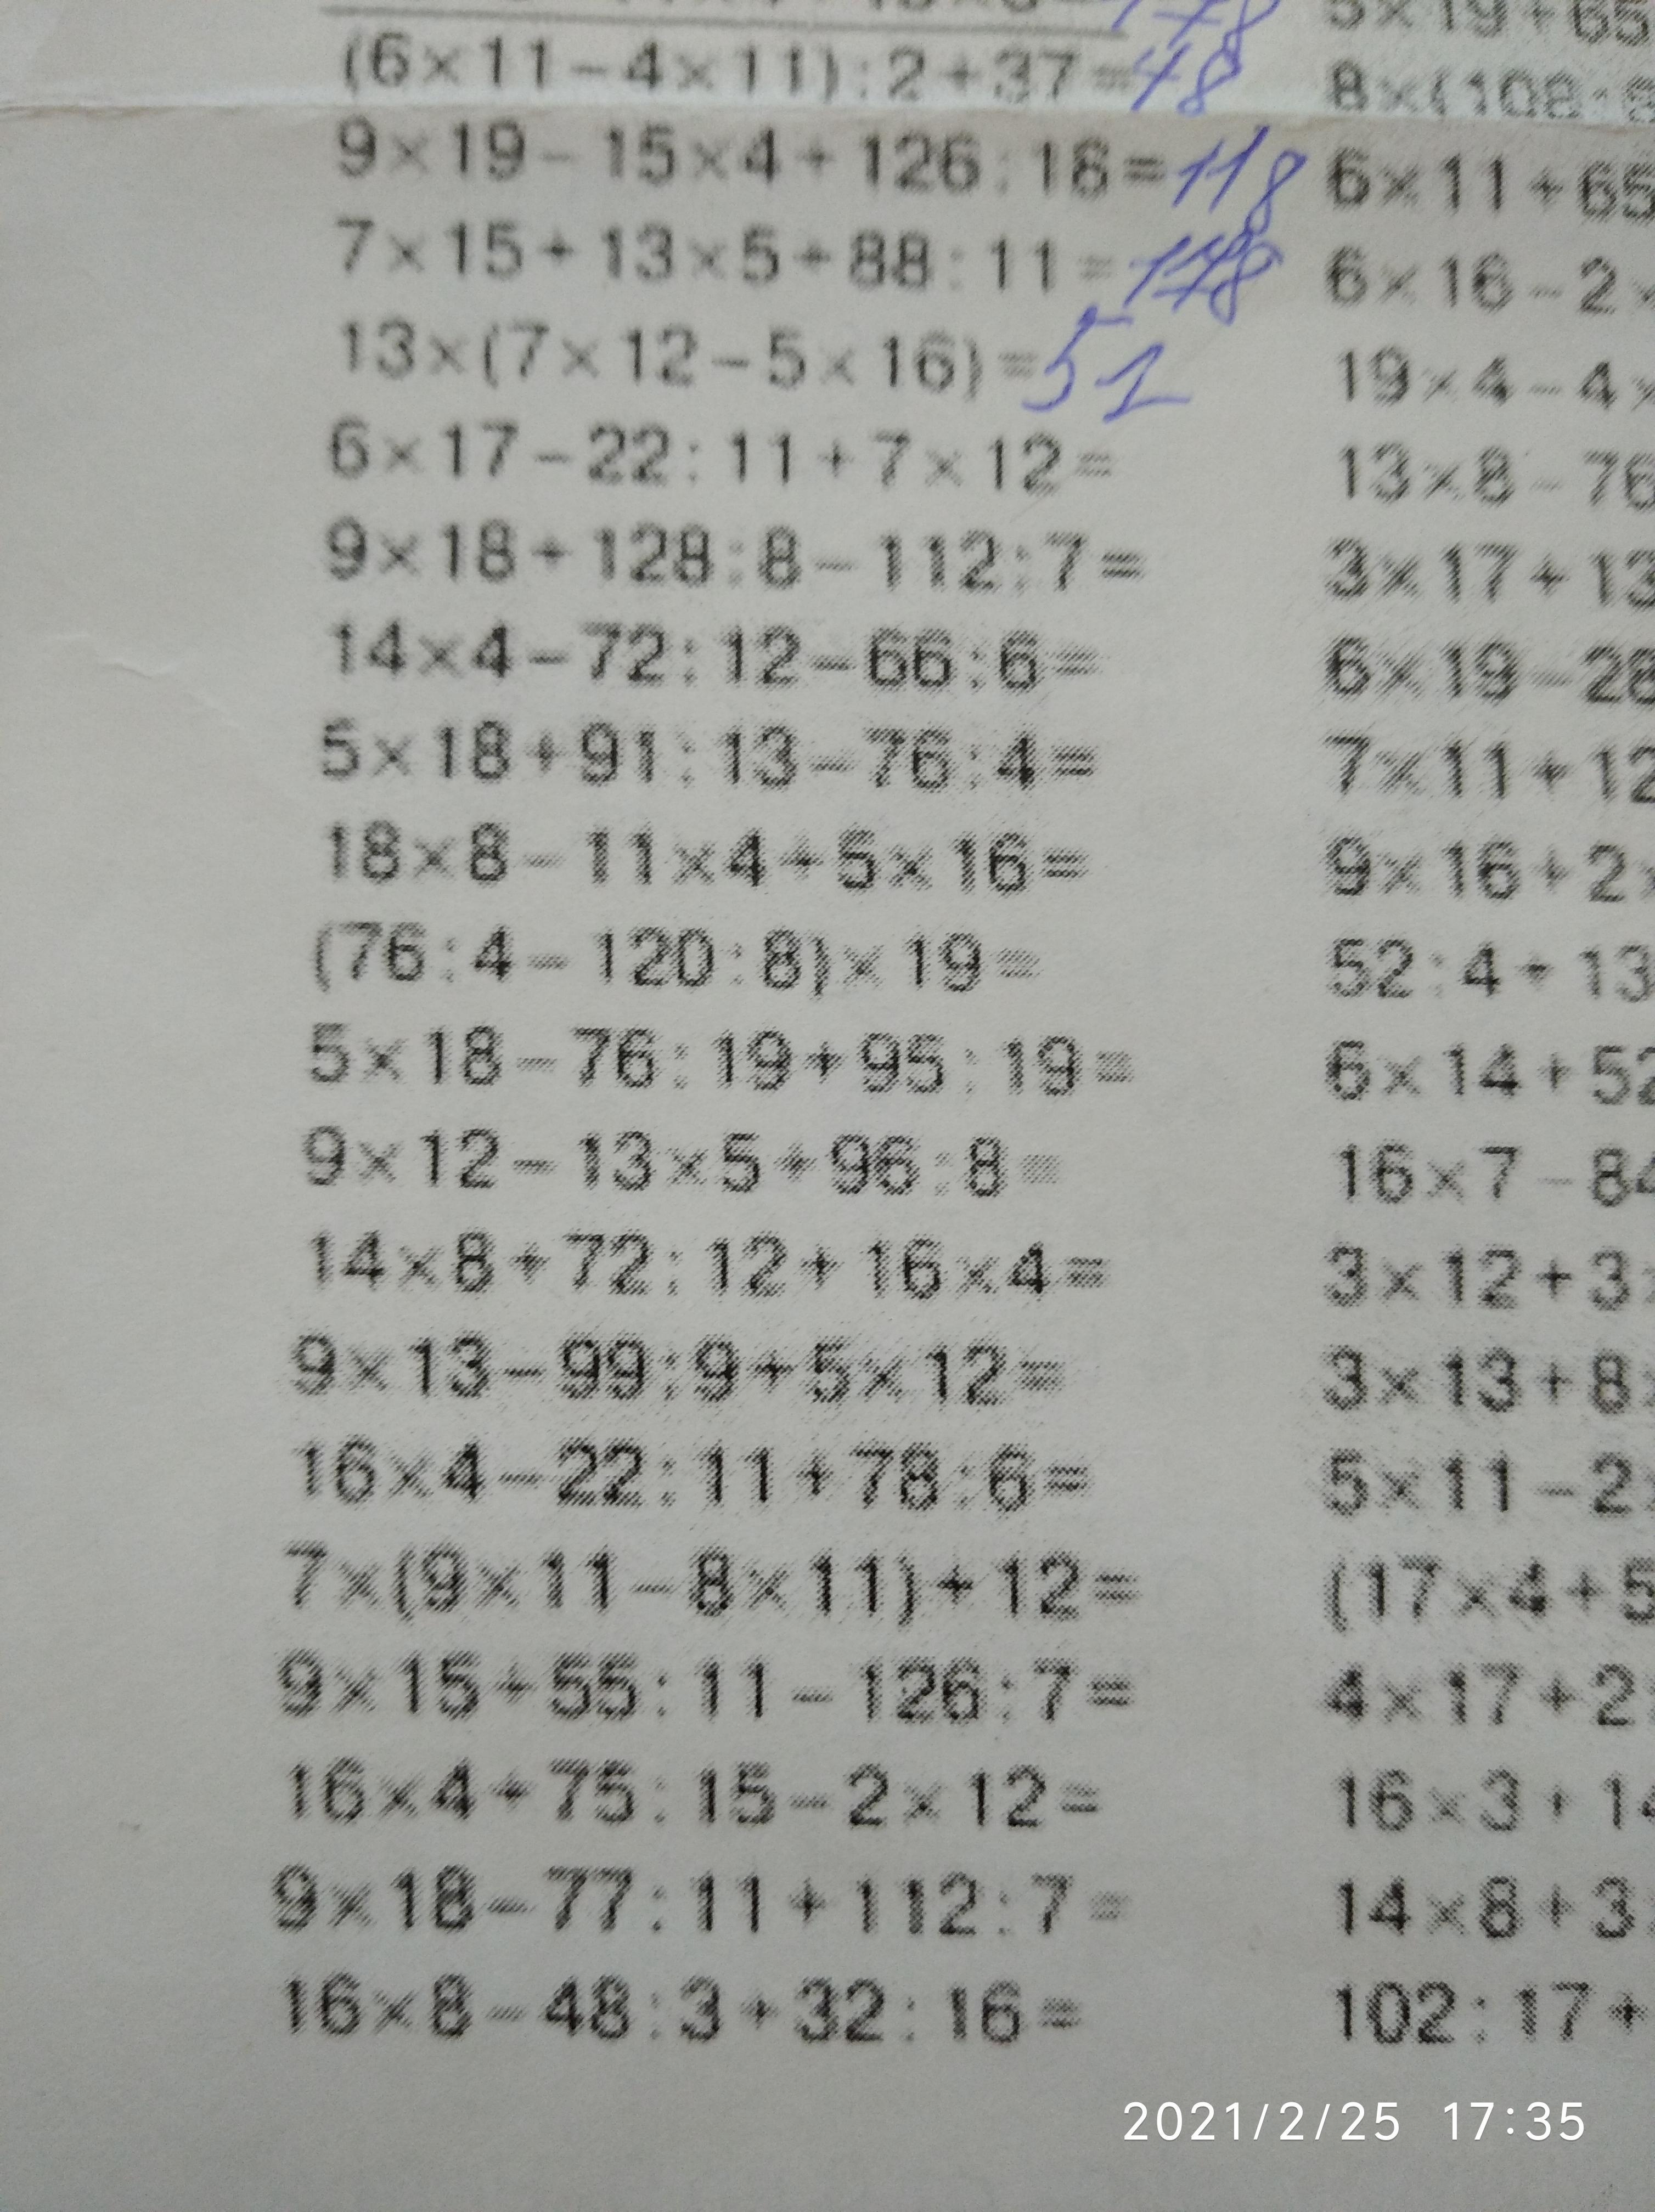 (6×11-4×11):2+37=48
9×19-15×4+126:18=118
7×15+13×5+88:11=178
13×(7×12-5×16)=52
6×17-22:11+7×12=
9×18+128:8-112:7=
14×4-72:12-66:6=
5×18+91:13-76:4=
18×8-11×4+5×16=
(76:4-120:8)×19=
5×18-76:19+95:19=
9×12-13×5+96:8=
14×8+72:12+16×4=
9×13-99:9+5×12=
16×4-22:11+78:6=
7×(9×11-8×11)+12=
9×15+55:11-126:7=
16×4+75:15-2×12=
9×18-77:11+112:7=
16×8-48:3+32:16=
5×19+65
8×(108:
6×11+65
6×16-2×
19×4-4×
13×8-76
3×17+13
6×19-28
7×11+12
9×16+2×
52:4+13
6×14+52
16×7-84
3×12+3
3×13+8
5×11-2
(17×4+5
4×17+2
16×3+14
14×8+3
102:17+
2021/2/25 17:35